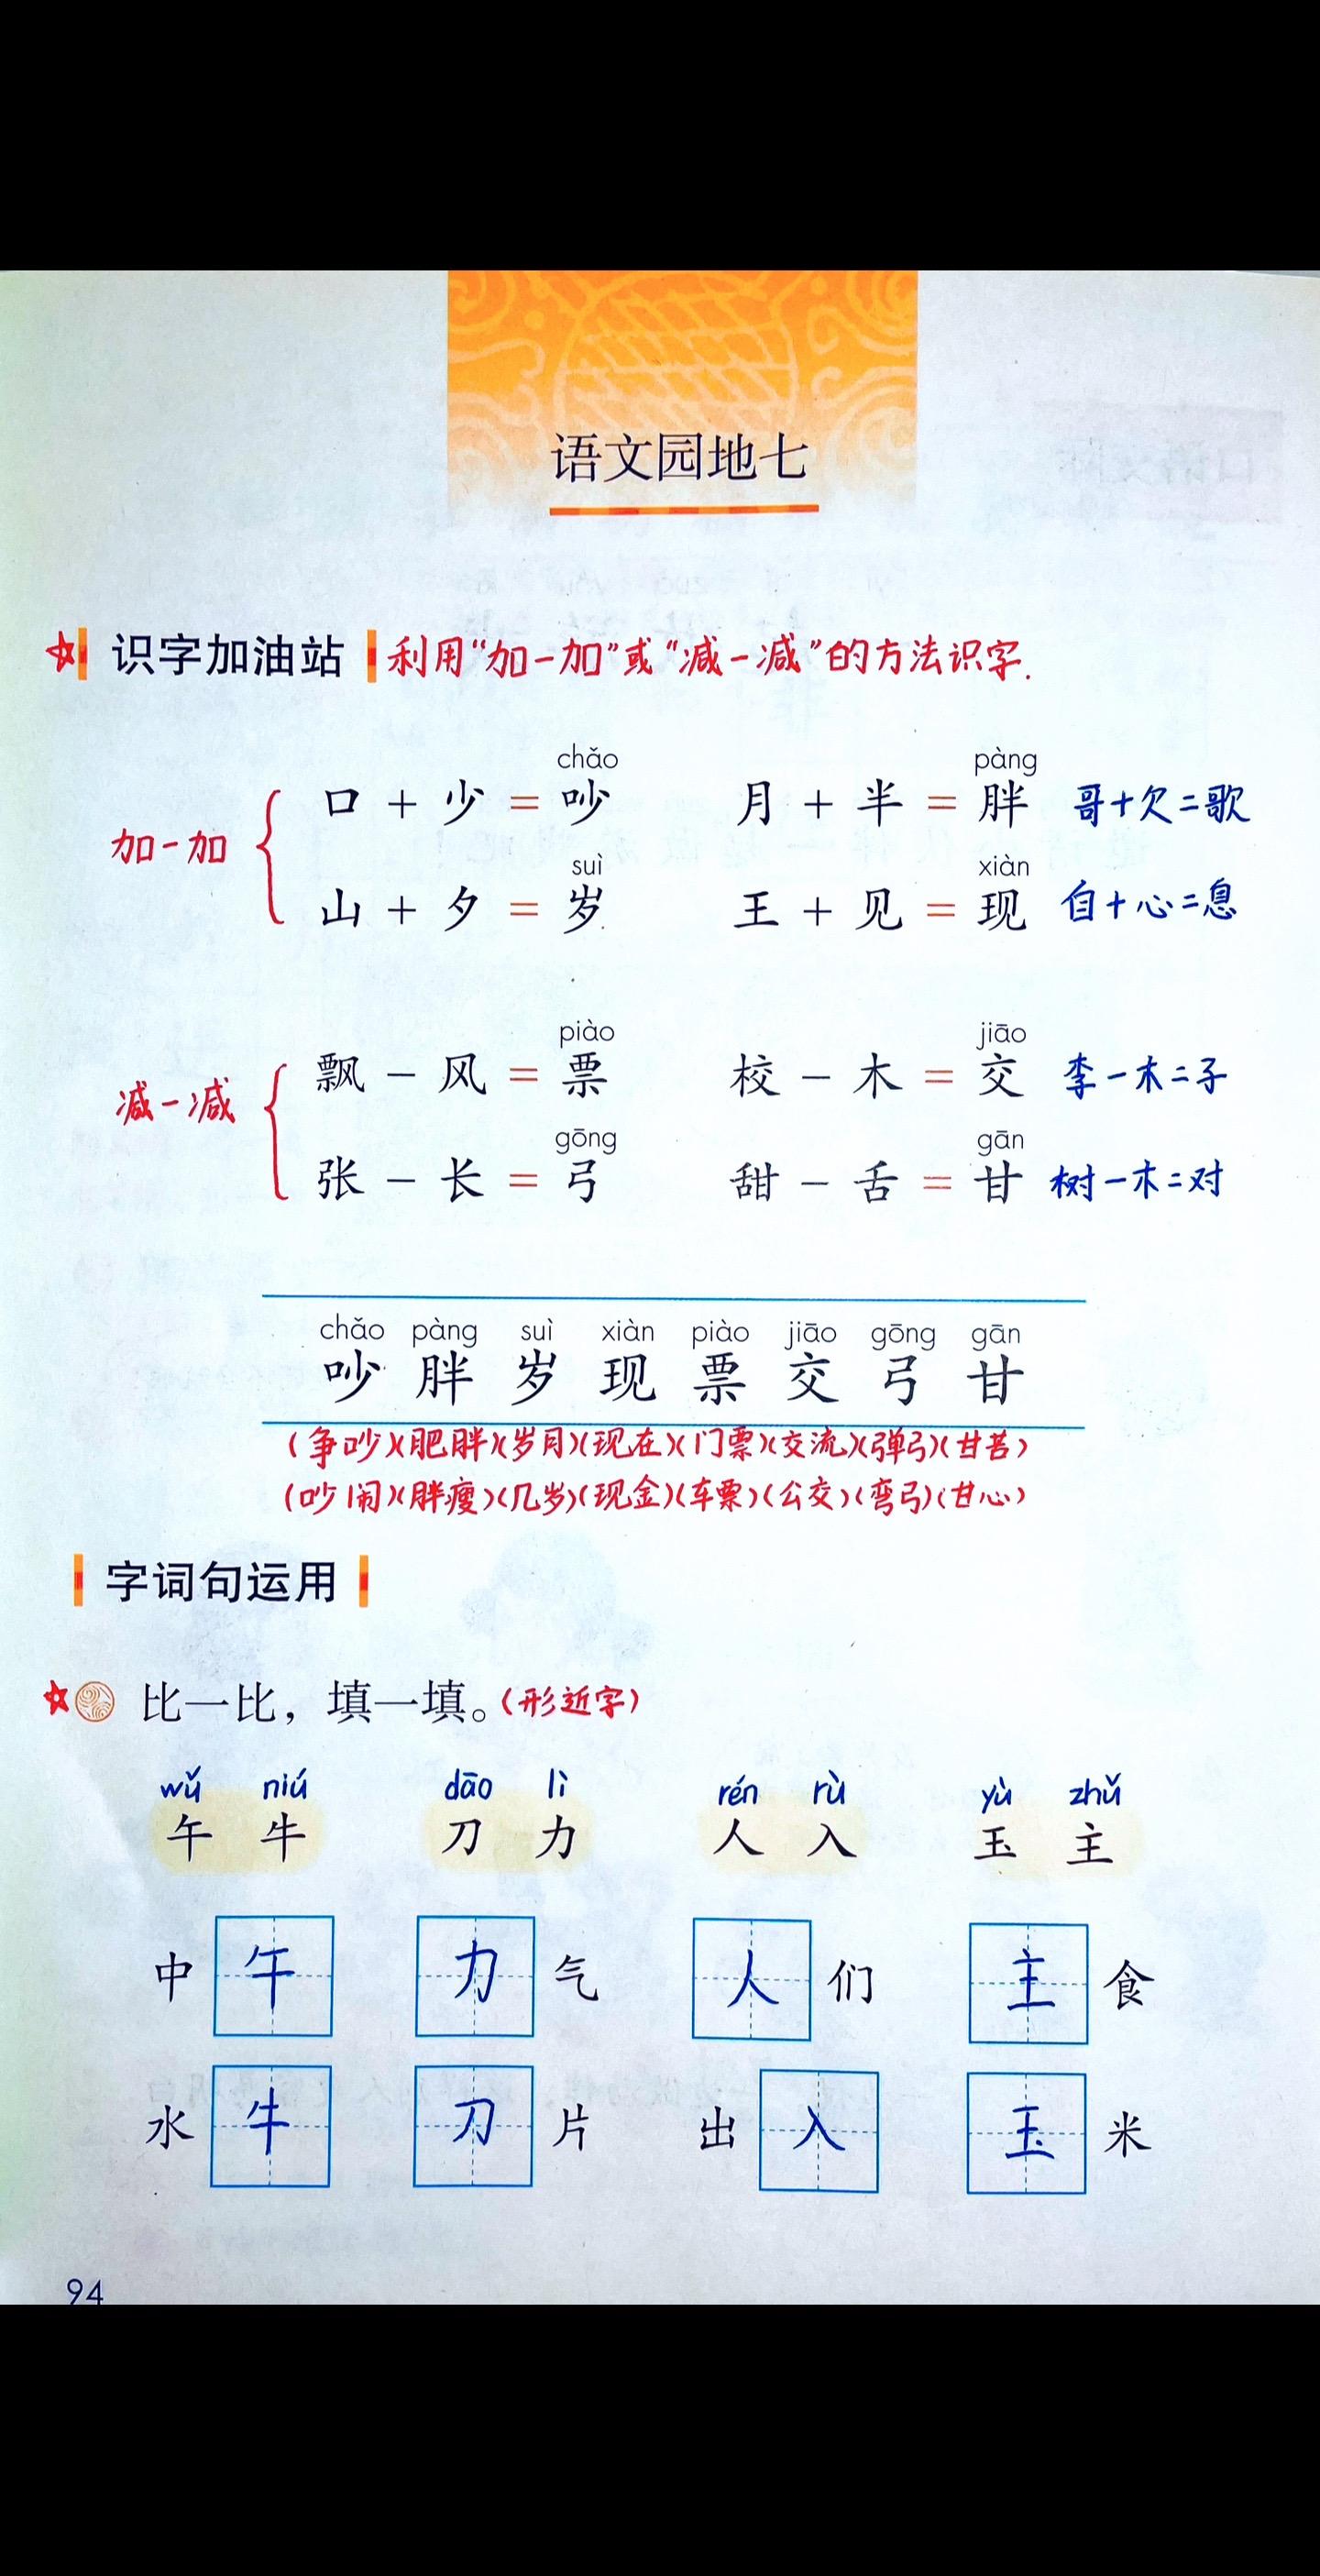 语文园地七
识字加油站 利用“加一加”或“减一减”的方法识字.
chǎo pàng
口 + 少 = 吵 月 + 半 = 胖 哥+欠=歌
加一加
suì xiàn
山 + 夕 = 岁 王 + 见 = 现 自+心=息
piào jiāo
飘 - 风 = 票 校 - 木 = 交 李-木=子
减一减
gōng gān
张 - 长 = 弓 甜 - 舌 = 甘 树-木=对
chǎo pàng suì xiàn piào jiāo gōng gān
吵 胖 岁 现 票 交 弓 甘
(争吵)(肥胖)(岁月)(现在)(门票)(交流)(弹弓)(甘苦)
(吵闹)(胖瘦)(几岁)(现金)(车票)(公交)(弯弓)(甘心)
字词句运用
比一比，填一填。(形近字)
wǔ niú dāo lì rén rù yù zhǔ
午 牛 刀 力 人 入 玉 主
中 午 力 气 人 们 主 食
水 牛 刀 片 出 入 玉 米
94